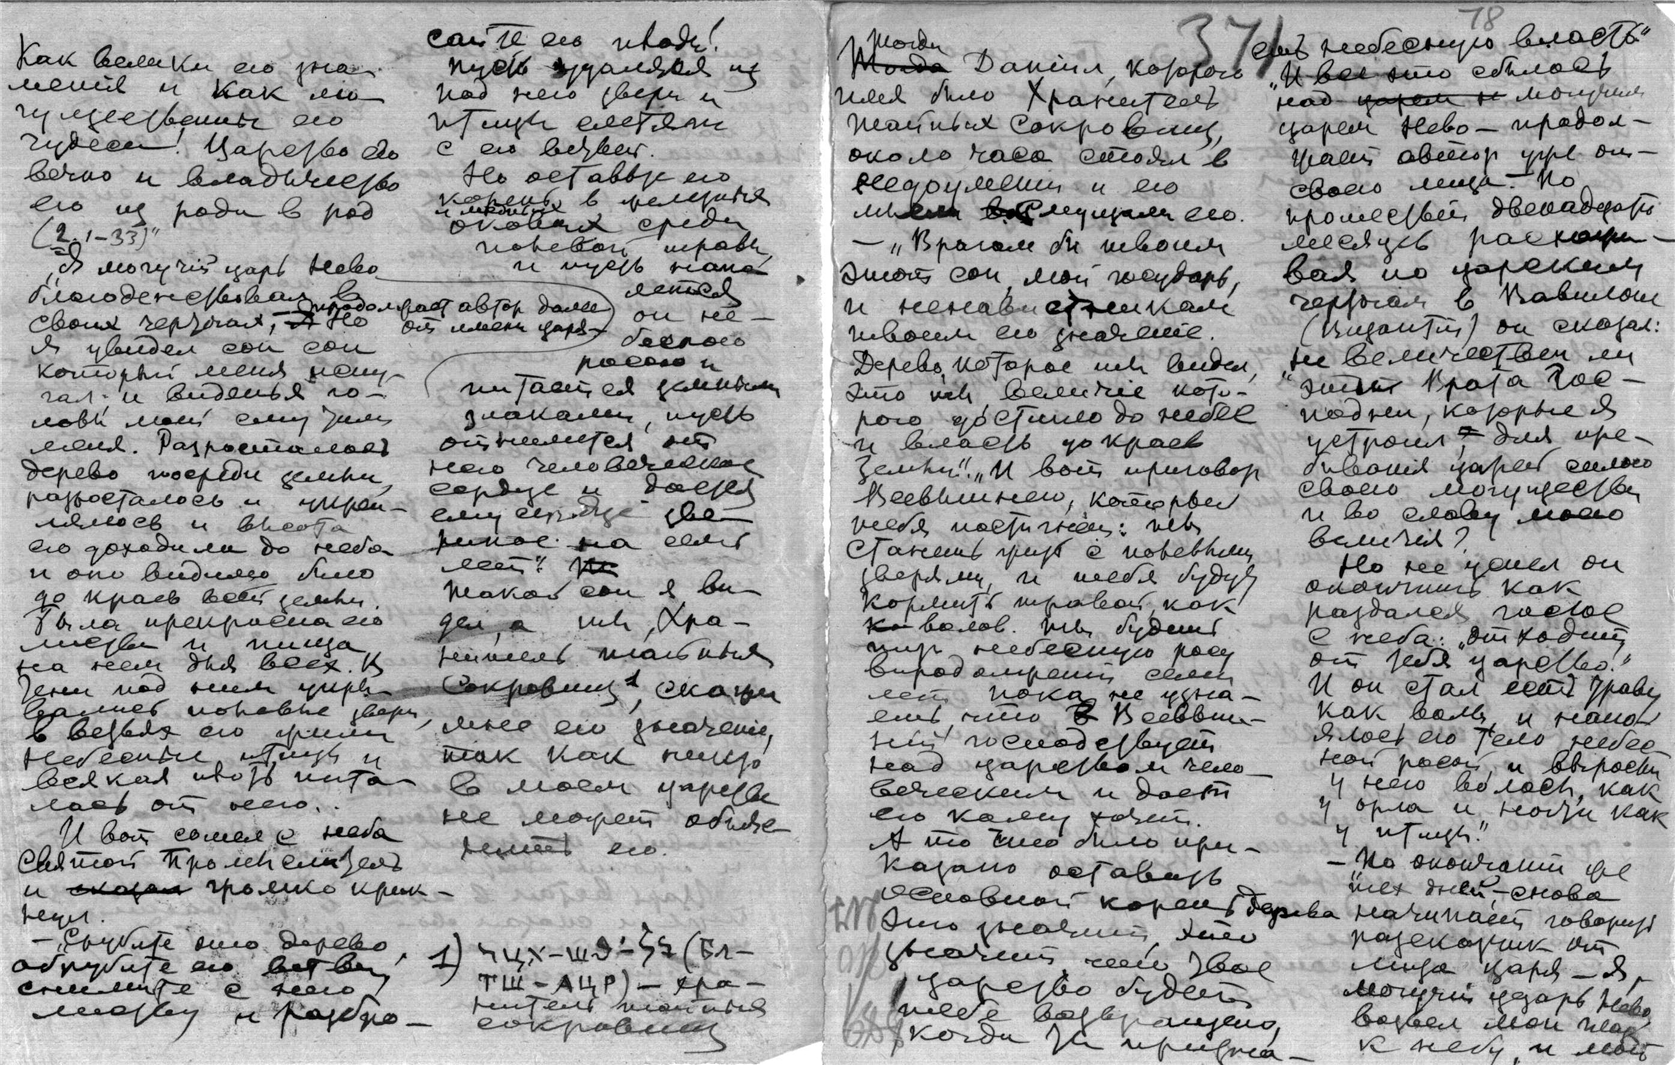 Как велики его зна-
мения и как мо-
гущественны его
чудеса! Царство его
вечно и владычество
его из рода в род
(2.1-33)"
"Я могучий царь Нево
благоденствовал в
своих чертогах, – Но
продолжает автор далее
от имени царя
я увидел сон
который меня испу-
гал и виденья го-
ловы моей смутили
меня. Разросталось
дерево посреди земли,
разросталось и укреп-
лялось и высота
его доходила до неба
и оно видимо было
до краев всей земли.
Была прекрасна его
листва и пища
на нем для всех. В
тени под ним укры-
вались полевые звери,
в ветвях его жили
небесные птицы и
всякая плоть пита-
лась от него.
И вот сошел с неба
святой
и сказал громко крик-
нул.
– "Срубите это дерево,
обрубите его ветви,
снимите с него
листву и разбро-
сайте его плоды!
пусть удалятся из
под него звери и
птицы слетят
с его ветвей.
Но оставьте его
корень в железных
и медных
оковах среди
полевой травы,
и пусть напо-
яется
он не-
бесною
росою и
питается земными
злаками, пусть
отнимется от
него человеческое
сердце и дастся
ему сердце зве-
риное на семь
лет".
Такой сон я ви-
дел, а ты, Хра-
нитель тайных
Сокровищ¹, скажи
мне его значение,
так как никто
в моем царстве
не может объяс-
нить его.
1) (БЛ-
ТШ-АЦР) – хра-
нитель тайных
сокровищ
371
78
Тогда
Тогда Даниил, которого
имя было Хранитель
тайных Сокровищ,
около часа стоял в
недоумении и его
мысли смущали его.
– "Врагам бы твоим
этот сон, мой государь,
и ненавистникам
твоим его значение.
Дерево, которое ты видел,
это ты, величие кото-
рого достигло до небес
и власть до краев
Земли". "И вот приговор
Всевышнего, который
тебя постигнет: ты
станешь жить с полевыми
зверями, и тебя будут
кормить травой, как
волов. ты будешь
пить небесную росу
в продолжении семи
лет пока не узна-
ешь что Всевыш-
ний господствует
над царством чело-
веческим и дает
его кому хочет.
А то что было при-
казано оставить
основной корень дерева
это значит, что
значит
царство будет
тебе возвращено,
когда ты призна-
ешь небесную власть"
"И все это сбылось
над царем и могучим
царем Нево – продол-
жает автор уже от
своего лица. По
прошествии двенадцати
месяцев расхажи-
вая по царским
чертогам в Вавилоне
(Византии) он сказал:
не величественны ли
"эти Врата Гос-
подни, которые я
устроил для пре-
бывания царей силою
своего могущества
и во славу моего
величия?
Но не успел он
окончить как
раздался голос
с неба: "отходит
от тебя царство."
И он стал есть траву
как волы, и напо-
ялось его тело небес-
ной росой и выросли
у него волосы, как
у орла и ногти как
у птицы".
– "По окончании же
тех дней, – снова
начинает говорить
рассказчик от
лица царя – я,
могучий царь Нево,
возвел мои глаза
к небу, и мой